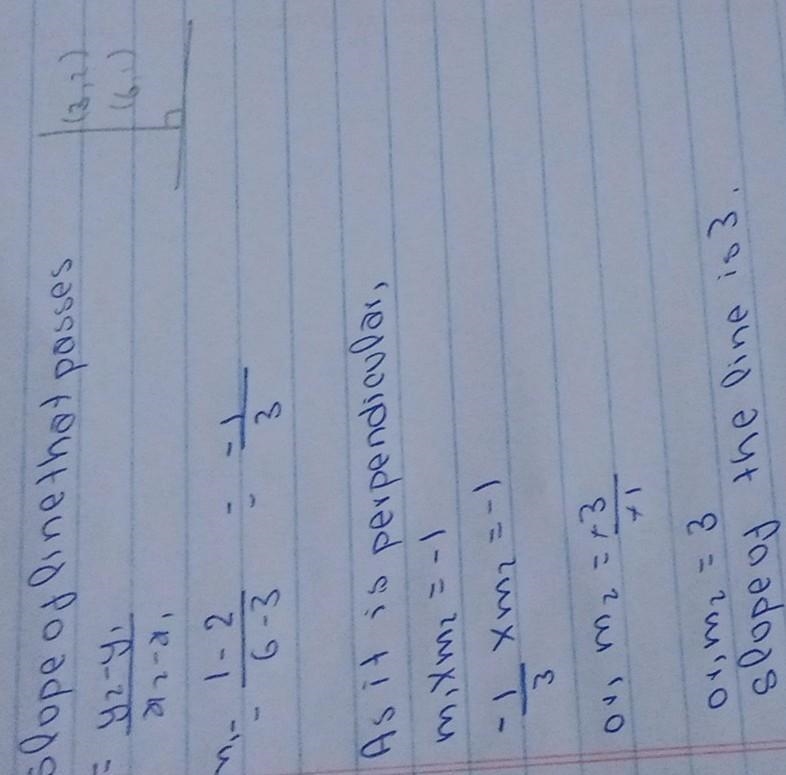 slope of line that passes
= y₂-y₁ / x₂-x₁
(3,2)
(6,1)
m₁ = 1-2 / 6-3 = -1/3
As it is perpendicular,
m₁ x m₂ = -1
-1/3 x m₂ = -1
or, m₂ = +3/+1
or, m₂ = 3
slope of the line is 3.